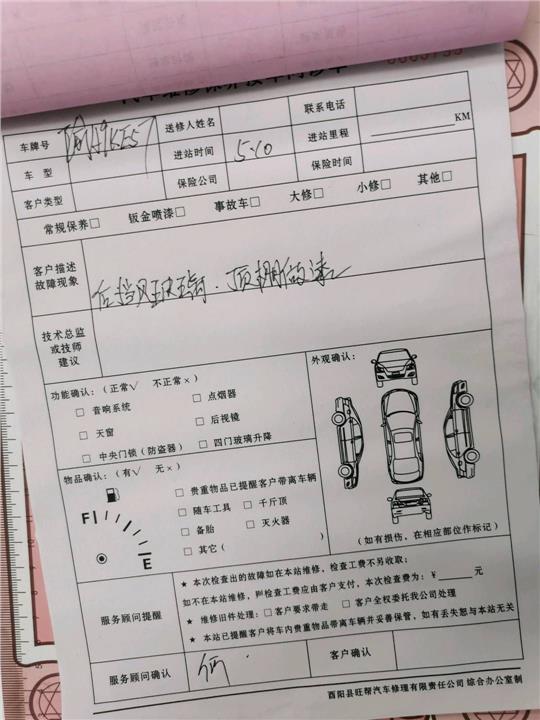 车牌号 送修人姓名 联系电话
车型 进站时间 5.10 进站里程 KM
客户类型 保险公司 保险时间
常规保养□ 钣金喷漆□ 事故车□ 大修□ 小修□ 其他□
客户描述
故障现象
后挡风玻璃.顶棚做漆
技术总监
或技师
建议
功能确认:(正常√ 不正常×)
□ 音响系统 □ 点烟器
□ 天窗 □ 后视镜
□ 中央门锁(防盗器) □ 四门玻璃升降
外观确认:
物品确认:(有√ 无×)
□ 贵重物品已提醒客户带离车辆
□ 随车工具 □ 千斤顶
□ 备胎 □ 灭火器
□ 其它(
F
E
(如有损伤,在相应部位作标记)
服务顾问提醒
★ 本次检查出的故障如在本站维修,检查工费不另收取;
如不在本站维修,则检查工费应由客户支付,本次检查费为:¥ 元
★ 维修旧件处理:□ 客户要求带走 □ 客户全权委托我公司处理
★ 本站已提醒客户将车内贵重物品带离车辆并妥善保管,如有丢失恕与本站无关
服务顾问确认 客户确认
酉阳县旺帮汽车修理有限责任公司 综合办公室制